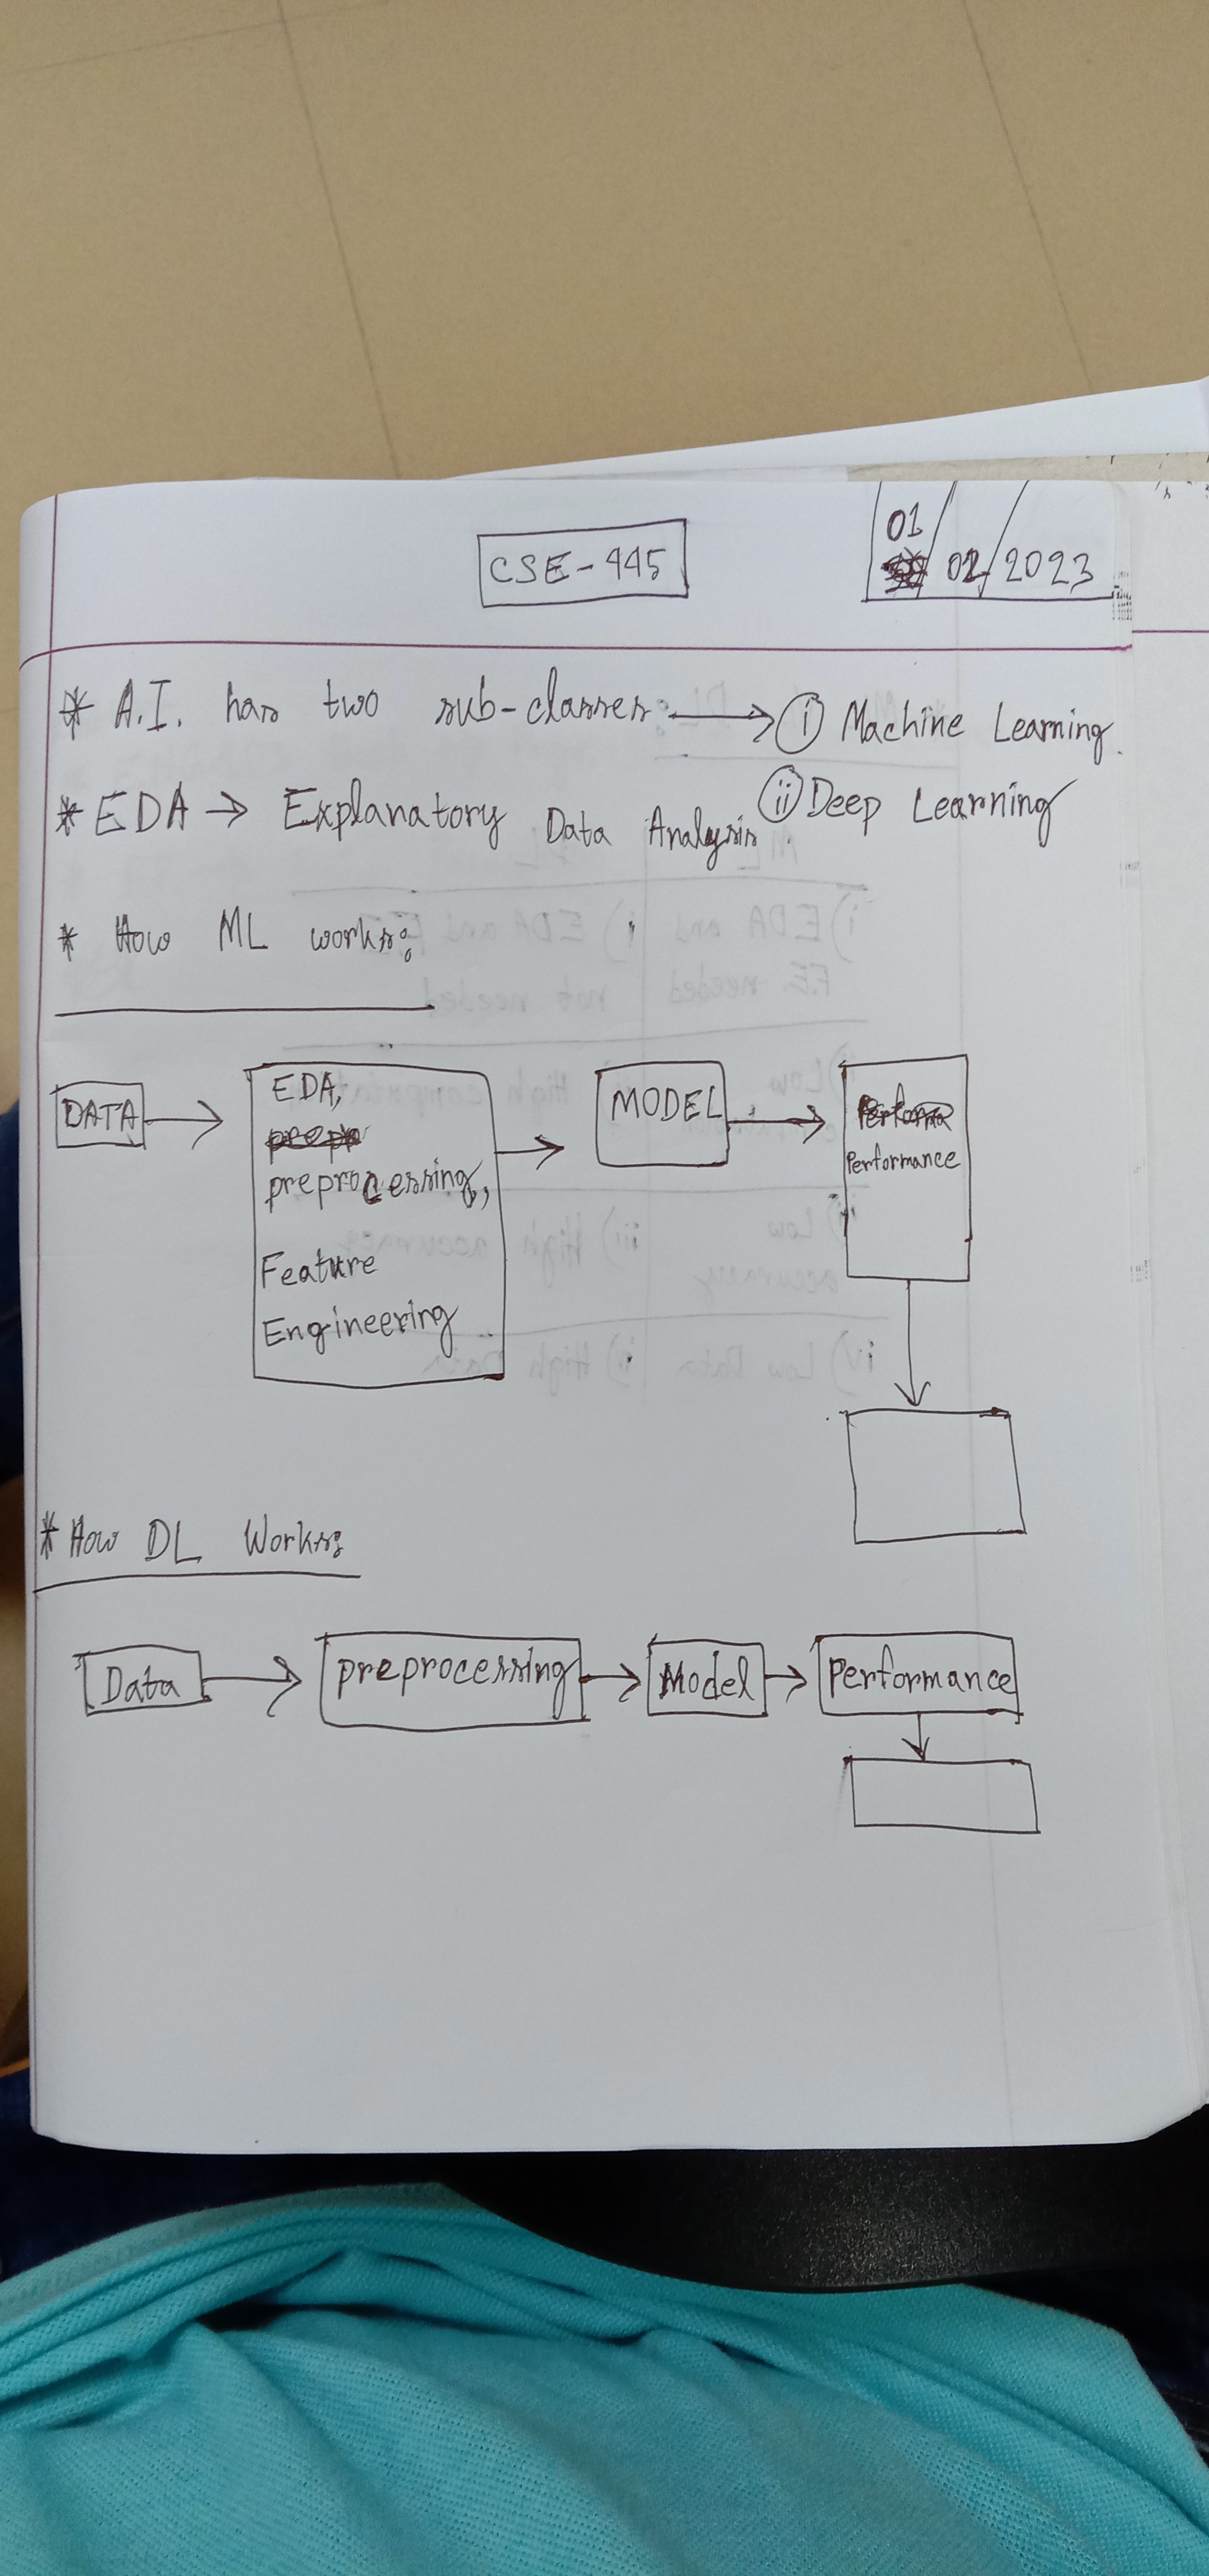 CSE-445
01
02/2023
* A.I. has two sub-classes: → i Machine Learning.
ii Deep Learning
* EDA → Explanatory Data Analysis.
* How ML works:
DATA → EDA, preprocessing, Feature Engineering → MODEL → Performance
* How DL Works:
Data → preprocessing → Model → Performance